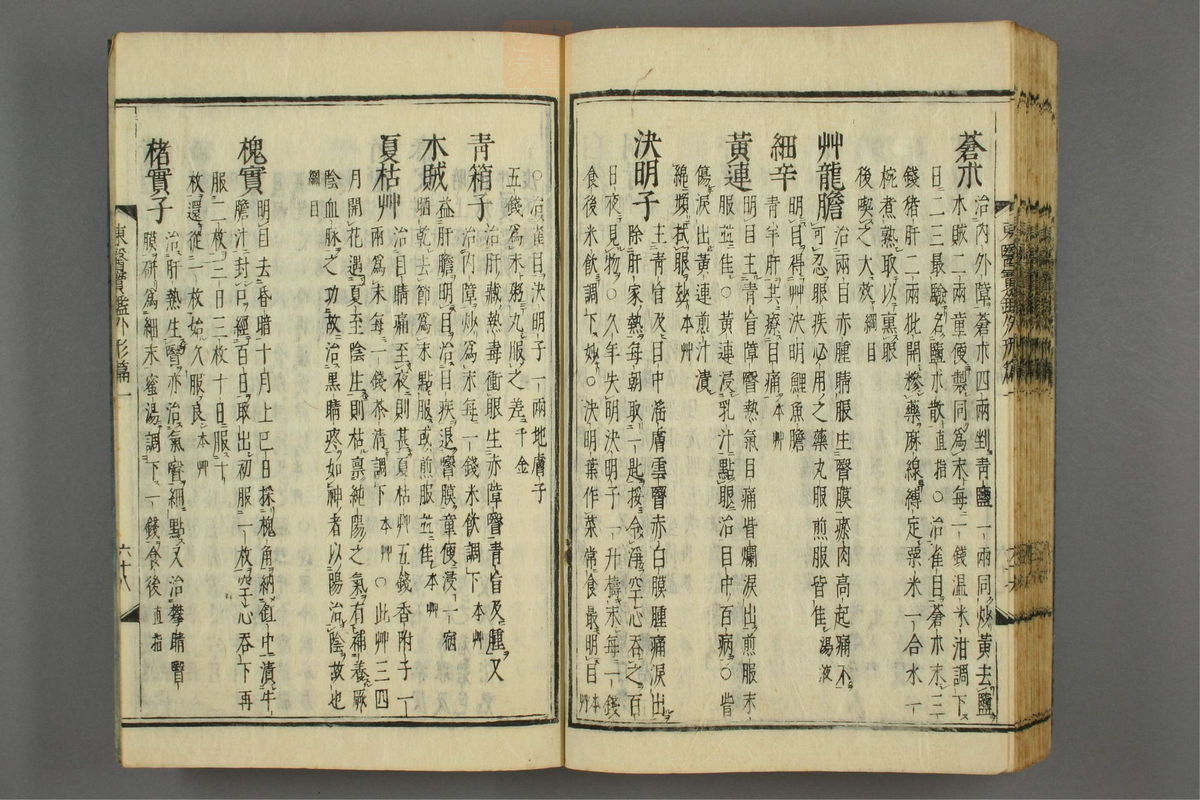 蒼朮
治內外障蒼朮四兩剉青鹽一兩同炒黃去鹽
木賊二兩童便製同爲末每一錢温米泔調下
日二三最驗名鹽朮散直指○治雀目蒼朮末三
錢猪肝二兩批開糝藥麻線縛定粟米一合水一
椀煮熟取以熏眼
後喫之大效綱目
艸龍膽
治兩目赤腫睛脹生瞖膜瘀肉高起痛不
可忍眼疾必用之藥丸服煎服皆佳湯液
細辛
明目得艸決明鯉魚膽
青羊肝共療目痛本艸
黃連
明目主青盲障瞖熱氣目痛眥爛淚出煎服末
服並佳○黃連浸乳汁點眼治目中百病○眥
傷淚出黃連煎汁漬
綿頻拭眼妙本艸
決明子
主青盲及目中滛膚雲瞖赤白膜腫痛淚出
除肝家熱每朝取一匙挼令淨空心吞之百
日夜見物○久年失明決明子二升擣末每一錢
食後米飮調下妙○決明葉作菜常食最明目本艸
○治雀目決明子一兩地膚子
五錢爲末粥丸服之差千金
青箱子
治肝藏熱毒衝眼生赤障瞖青盲及腫又
治內障炒爲末每一錢米飮調下本艸
木賊
益肝膽明目治目疾退瞖膜童便浸一宿
晒乾去節爲末點服或煎服並佳本艸
夏枯艸
治目睛痛至夜則甚夏枯艸五錢香附子一
兩爲末每一錢茶清調下本艸○此艸三四
月開花遇夏至陰生則枯禀純陽之氣有補養厥
陰血脉之功故治黑睛疼如神者以陽治陰故也
綱目
槐實
明目去昏暗十月上巳日採槐角納缸中漬牛
膽汁封口經百日取出初服一枚空心吞下再
服二枚三日三枚十日服十
枚還從一枚始久服良本艸
楮實子
治肝熱生瞖亦治氣瞖細點又治攀睛瞖
膜研爲細末蜜湯調下一錢食後直指
東醫寶鑑外形篇一
六十八